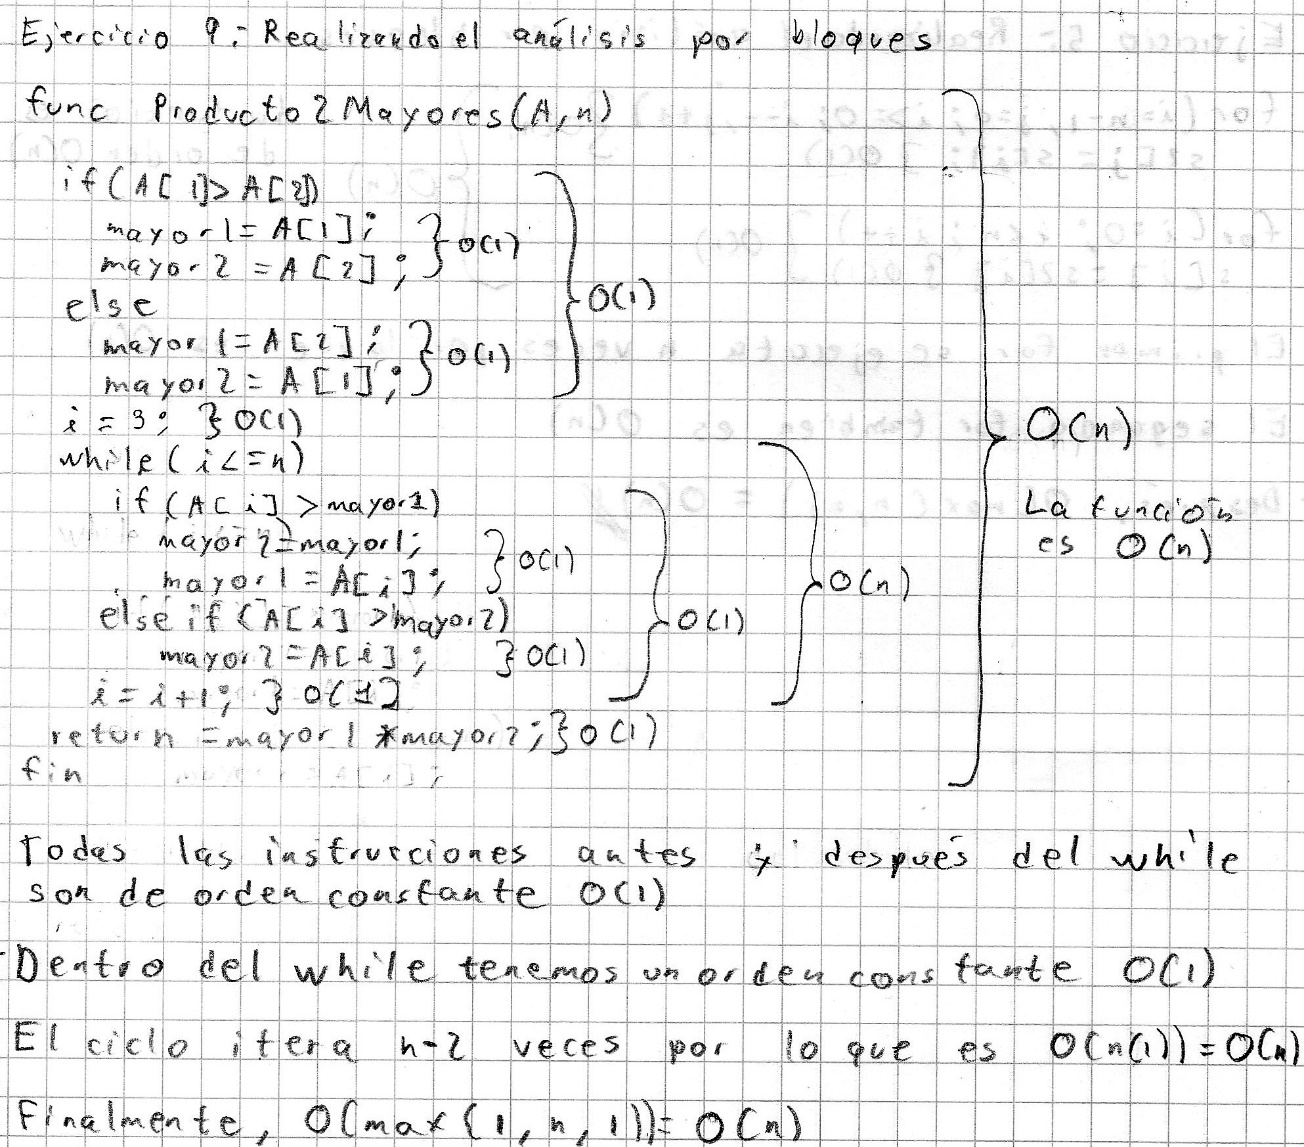 Ejercicio 9.- Realizando el análisis por bloques
func Producto2Mayores(A,n)
if(A[1]>A[2])
mayor1=A[1];
mayor2=A[2];
}O(1)
else
mayor1=A[2];
mayor2=A[1];
}O(1)
}O(1)
i=3; }O(1)
while(i<=n)
if(A[i]>mayor1)
mayor2=mayor1;
mayor1=A[i];
}O(1)
else if(A[i]>mayor2)
mayor2=A[i]; }O(1)
}O(1)
i=i+1; }O(1)
}O(n)
return=mayor1*mayor2;}O(1)
fin
}O(n)
La función
es O(n)
Todas las instrucciones antes y después del while
son de orden constante O(1)
Dentro del while tenemos un orden constante O(1)
El ciclo itera n-2 veces por lo que es O(n(1))=O(n)
Finalmente, O(max(1,n,1))=O(n)